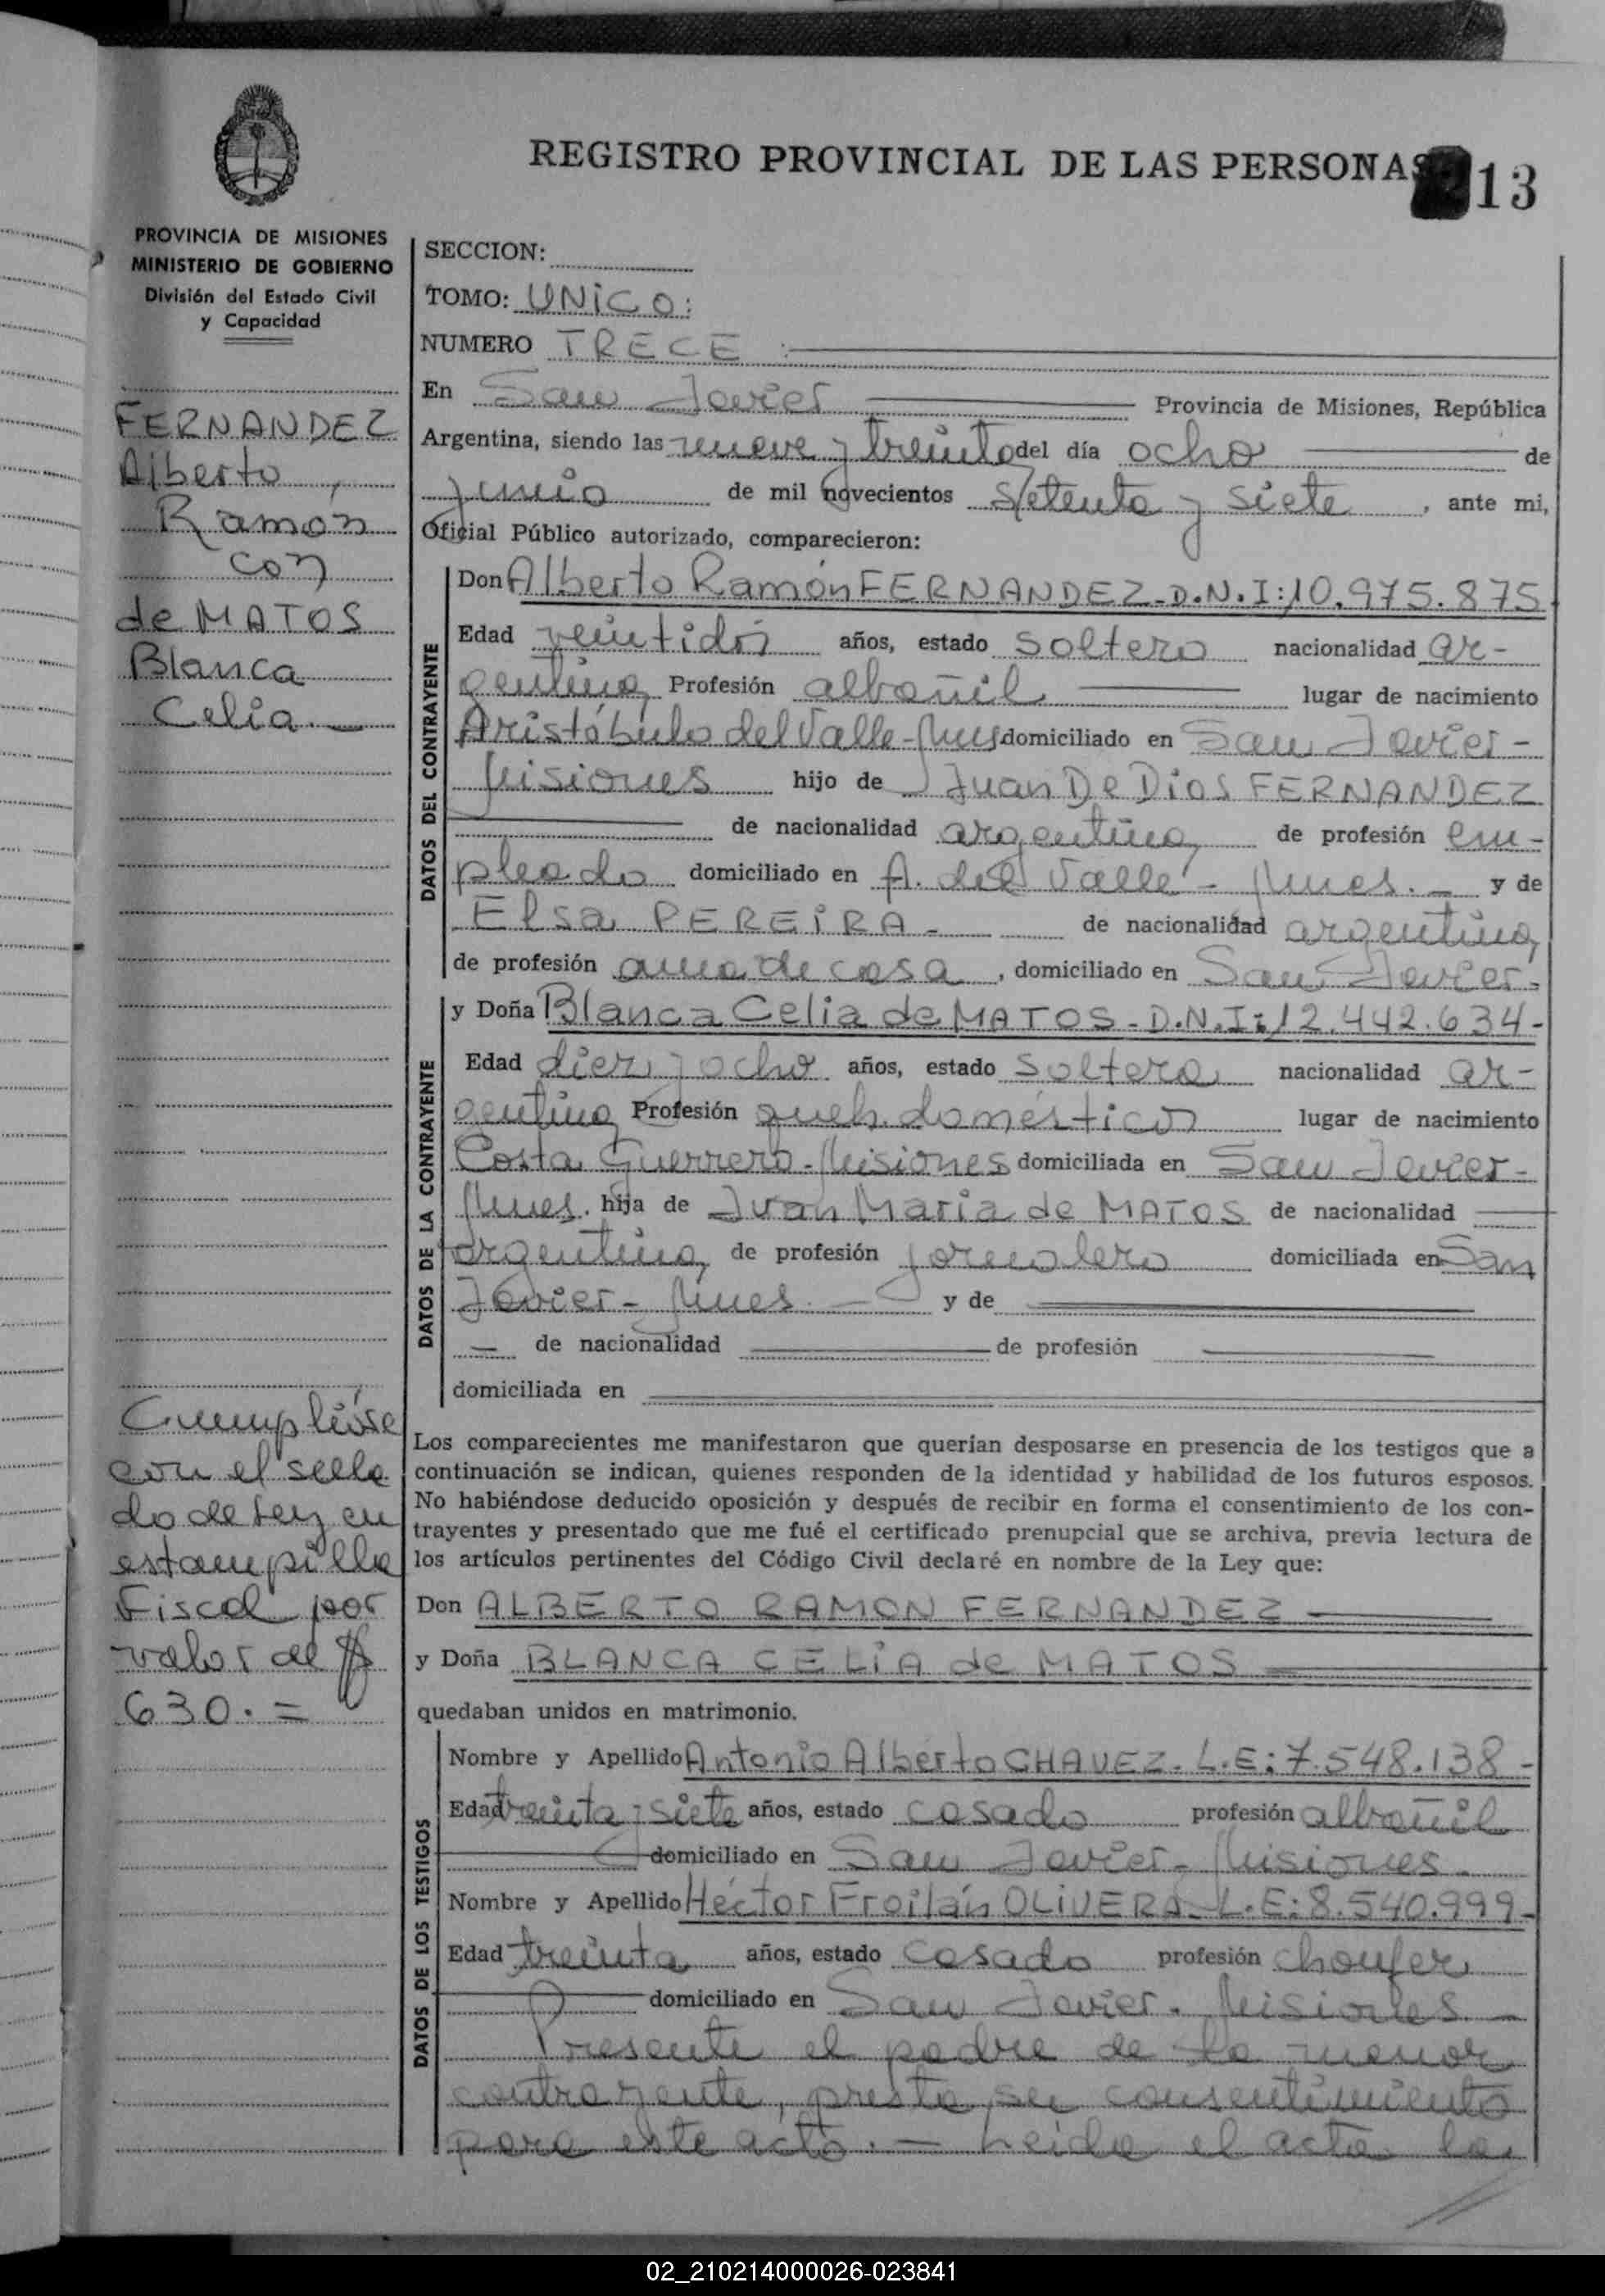 REGISTRO PROVINCIAL DE LAS PERSONAS
13
PROVINCIA DE MISIONES
MINISTERIO DE GOBIERNO
División del Estado Civil
y Capacidad
FERNANDEZ
Alberto,
Ramon
con
de MATOS
Blanca
Celia.-
Cumplióse
con el sella
do de Ley en
estampilla
Fiscal por
valor de $
630.=
SECCION:
TOMO: UNICO:
NUMERO TRECE :
En San Javier Provincia de Misiones, República
Argentina, siendo las nueve y treinta del día ocho de
junio de mil novecientos setenta y siete, ante mi,
Oficial Público autorizado, comparecieron:
DATOS DEL CONTRAYENTE
Don Alberto Ramón FERNANDEZ-D.N.I:10.975.875
Edad veintidós años, estado soltero nacionalidad ar-
gentina, Profesión albañil lugar de nacimiento
Aristóbulo del Valle-Mnes domiciliado en San Javier-
Misiones hijo de Juan De Dios FERNANDEZ
de nacionalidad argentina, de profesión em-
pleado domiciliado en A. del Valle - Mnes.- y de
Elsa PEREIRA- de nacionalidad argentina,
de profesión ama de casa, domiciliado en San Javier-
DATOS DE LA CONTRAYENTE
y Doña Blanca Celia de MATOS-D.N.I:12.442.634-
Edad diez y ocho años, estado soltera nacionalidad ar-
gentina Profesión queh. domésticos lugar de nacimiento
Costa Guerrero-Misiones domiciliada en San Javier-
Mnes. hija de Juan Maria de MATOS de nacionalidad
argentina, de profesión jornalero domiciliada en San
Javier- Mnes.- y de
de nacionalidad de profesión
domiciliada en
Los comparecientes me manifestaron que querían desposarse en presencia de los testigos que a
continuación se indican, quienes responden de la identidad y habilidad de los futuros esposos.
No habiéndose deducido oposición y después de recibir en forma el consentimiento de los con-
trayentes y presentado que me fué el certificado prenupcial que se archiva, previa lectura de
los artículos pertinentes del Código Civil declaré en nombre de la Ley que:
Don ALBERTO RAMON FERNANDEZ
y Doña BLANCA CELIA de MATOS
quedaban unidos en matrimonio.
DATOS DE LOS TESTIGOS
Nombre y Apellido Antonio Alberto CHAVEZ. L.E:7.548.138-
Edad treinta y siete años, estado casado profesión albañil
domiciliado en San Javier- Misiones-
Nombre y Apellido Héctor Froilán OLIVERA-L.E:8.540.999-
Edad treinta años, estado casado profesión choufer
domiciliado en San Javier. Misiones-
Presente el padre de la menor
contrayente, presta su consentimiento
para este acto.- Leida el acta la
02_210214000026-023841